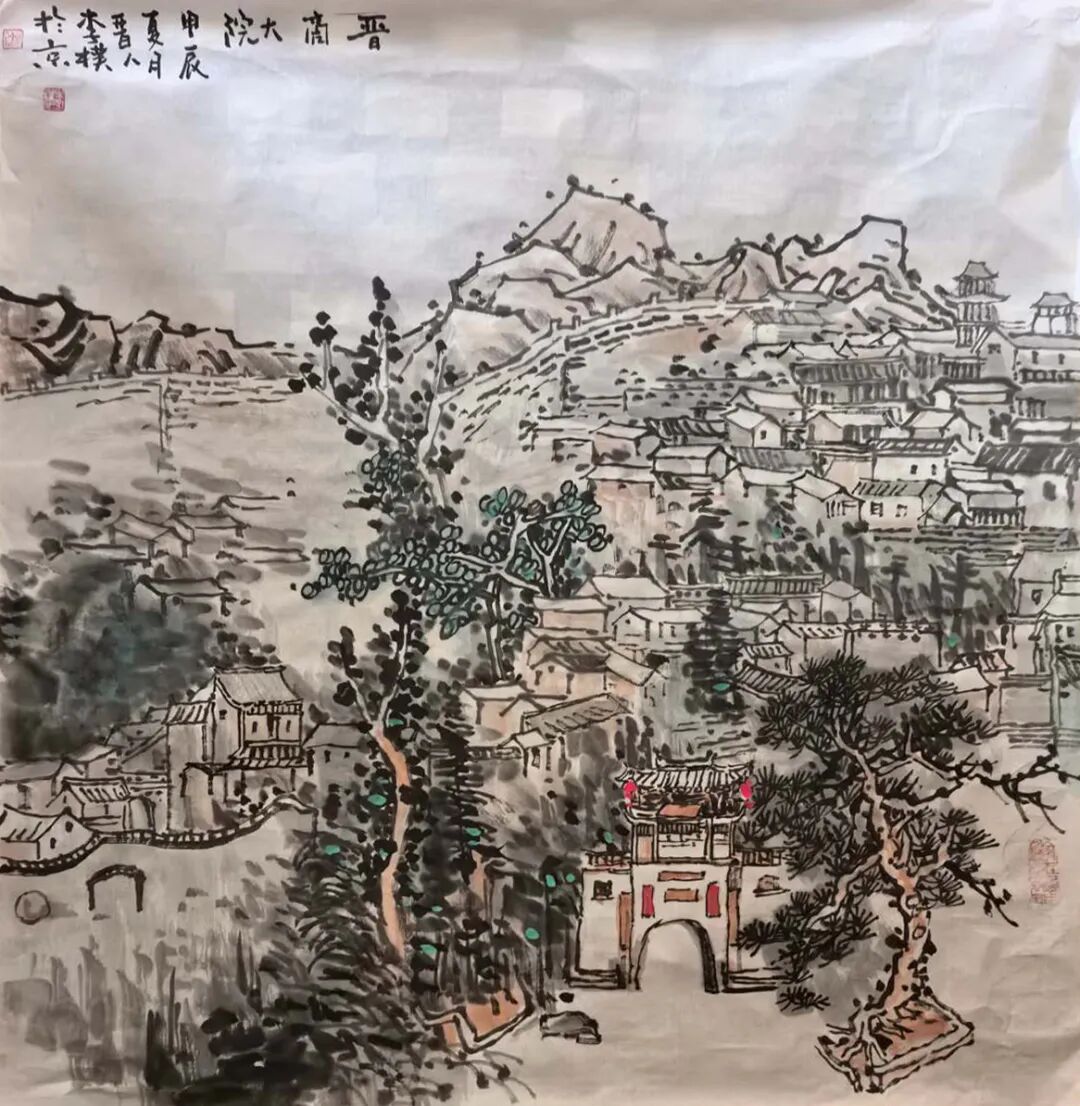 晋商大院
甲辰
夏月
晋人
李樸
於京